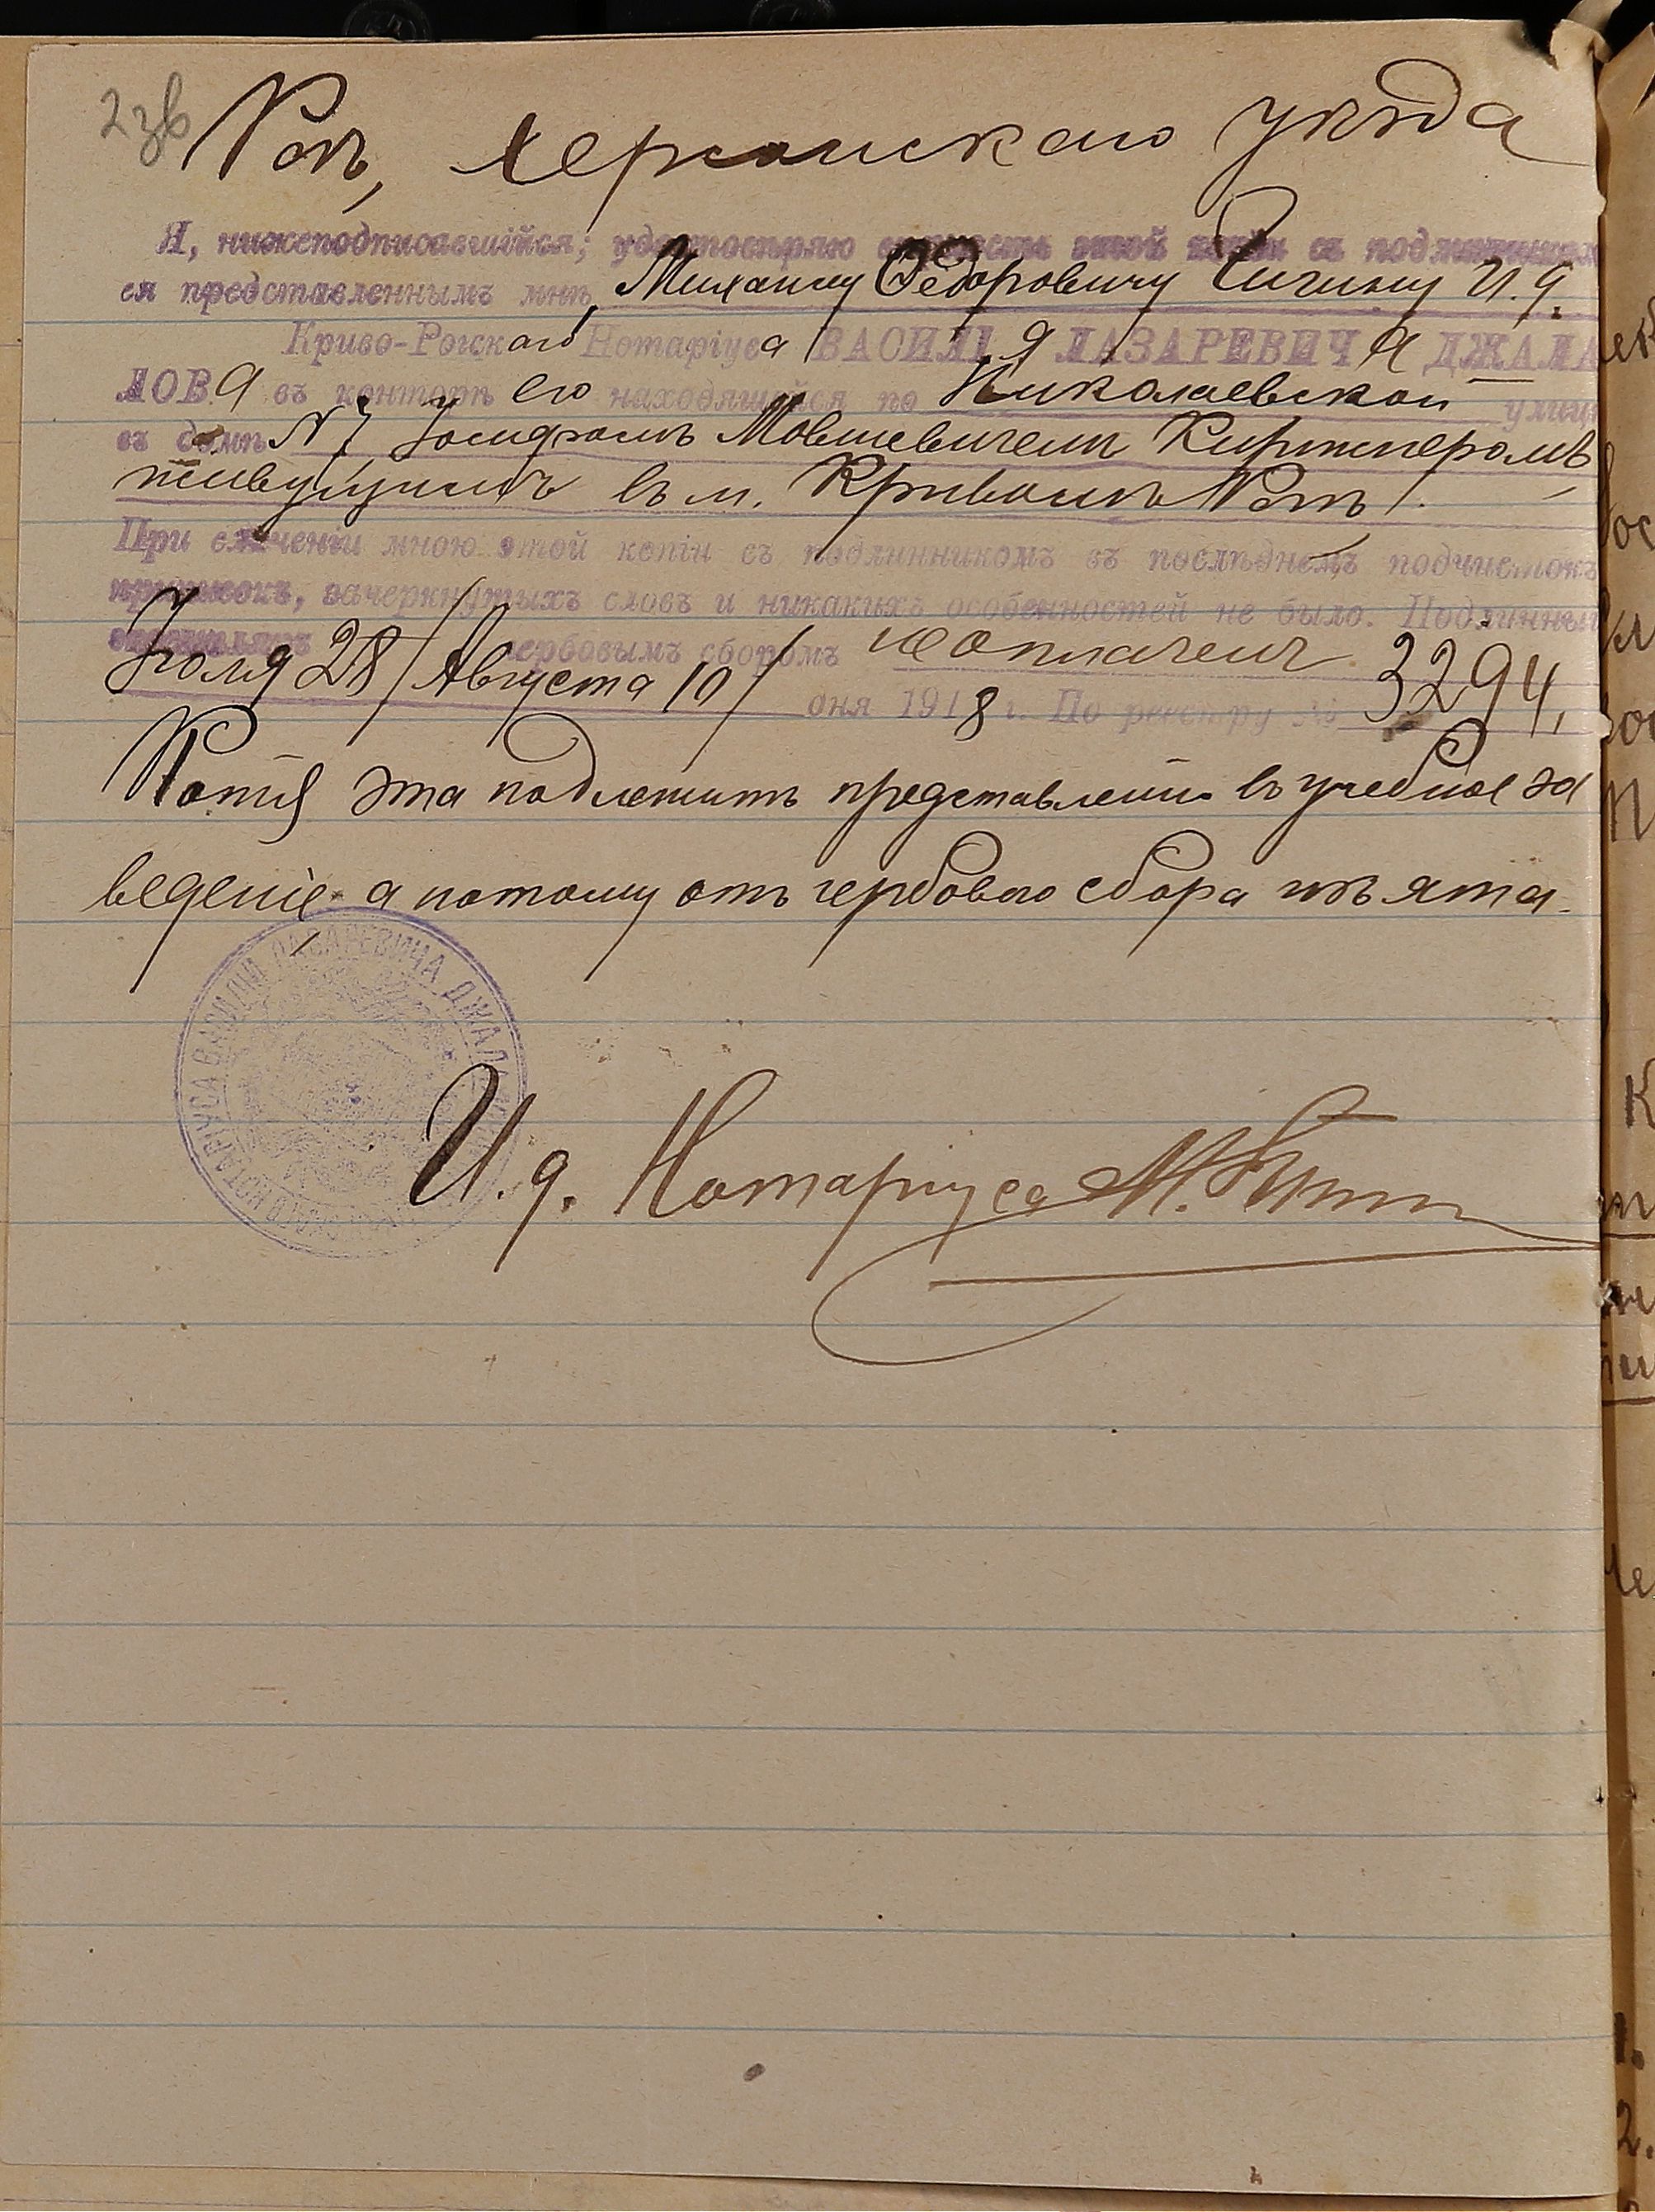 23в
Рогъ, Херсонскаго уѣзда
Я, нижеподписавшійся, удостовѣряю вѣрность этой копіи съ подлинникомъ
ея представленнымъ мнѣ, Михаилу Ѳедоровичу Чигину И.д.
Криво-Рогскаго Нотаріуса ВАСИЛІЯ ЛАЗАРЕВИЧА ДЖАЛА
ЛОВА въ конторѣ его находящейся по Николаевской улицѣ
въ домѣ № 7, Іосифомъ Мовшевичемъ Киржнеромъ,
живущимъ въ м. Кривомъ Рогѣ.
При сличеніи мною этой копіи съ подлинникомъ въ послѣднемъ подчистокъ
приписокъ, зачеркнутыхъ словъ и никакихъ особенностей не было. Подлинный
гербовымъ сборомъ неоплаченъ
Іюля 28/Августа 10/ дня 1918 г. По реестру № 3294,
Копія эта подлежитъ представленію въ учебное за
веденіе а потому отъ гербоваго сбора изъята.
НОТАРІУСА ВАСИЛІЯ ЛАЗАРЕВИЧА ДЖАЛАЛОВА
И.д. Нотаріуса М.